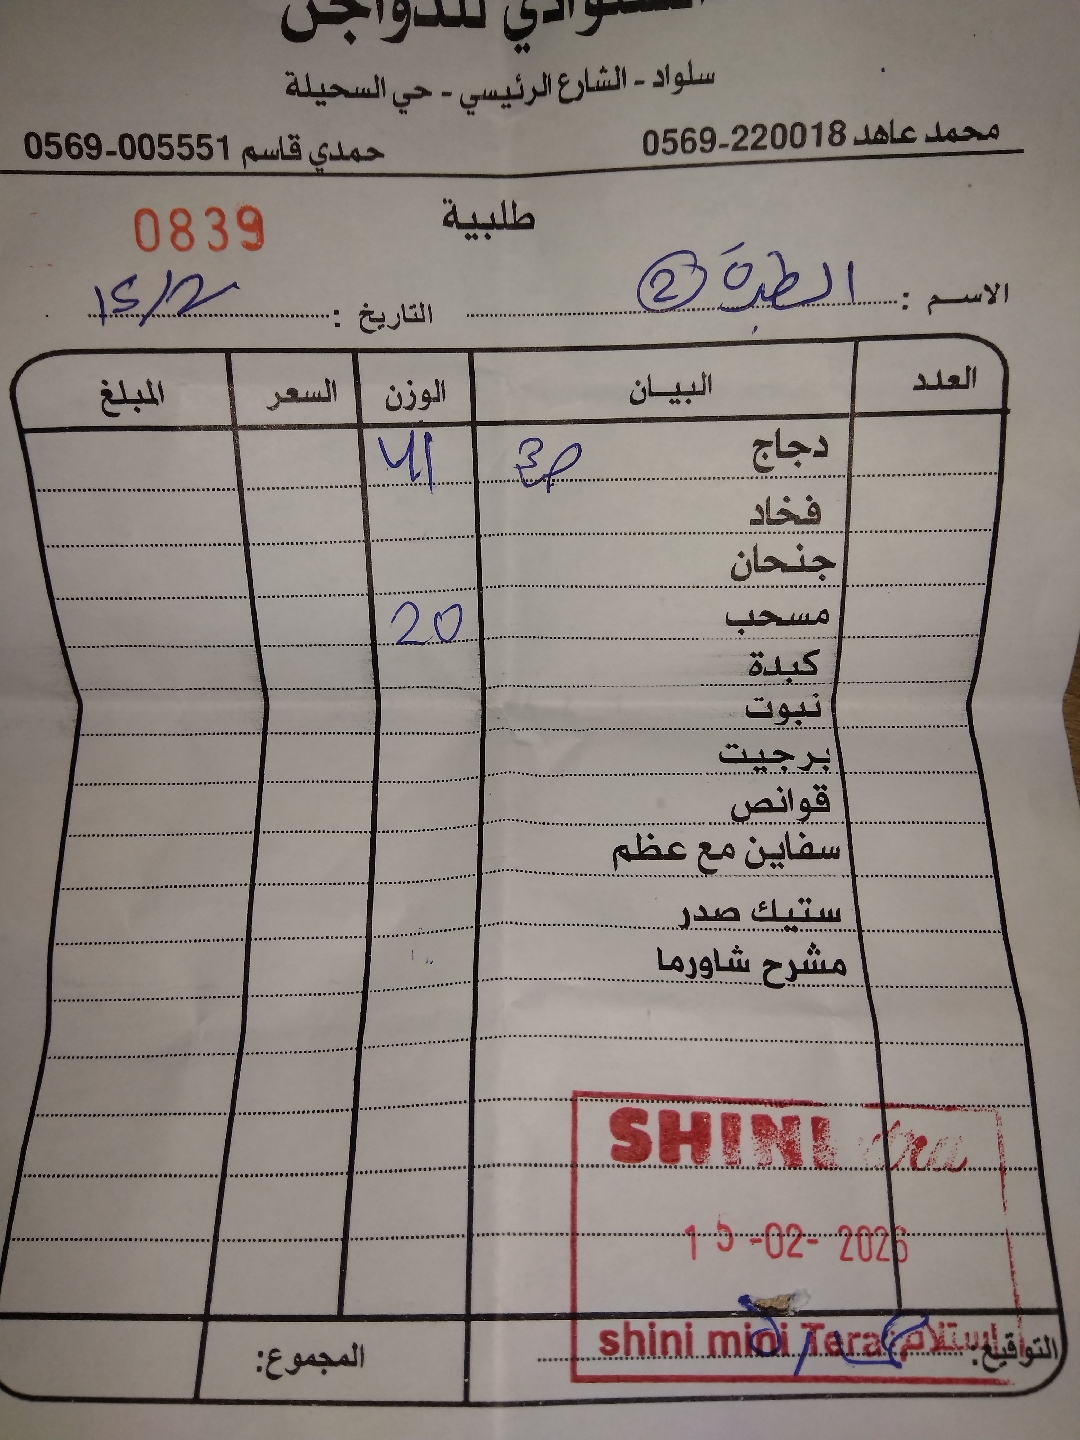 للدواجن
سلواد - الشارع الرئيسي - حي السحيلة
محمد عاهد 0569-220018 حمدي قاسم 0569-005551
طلبية 0839
الاسم : الطيرة 2 التاريخ : 15/2
العدد البيان الوزن السعر المبلغ
دجاج 41
فخاد
جنحان
مسحب 20
كبدة
نبوت
برجيت
قوانص
سفاين مع عظم
ستيك صدر
مشرح شاورما
SHINI
15-02-2026
shini mini Tera استلام
التوقيع: المجموع: